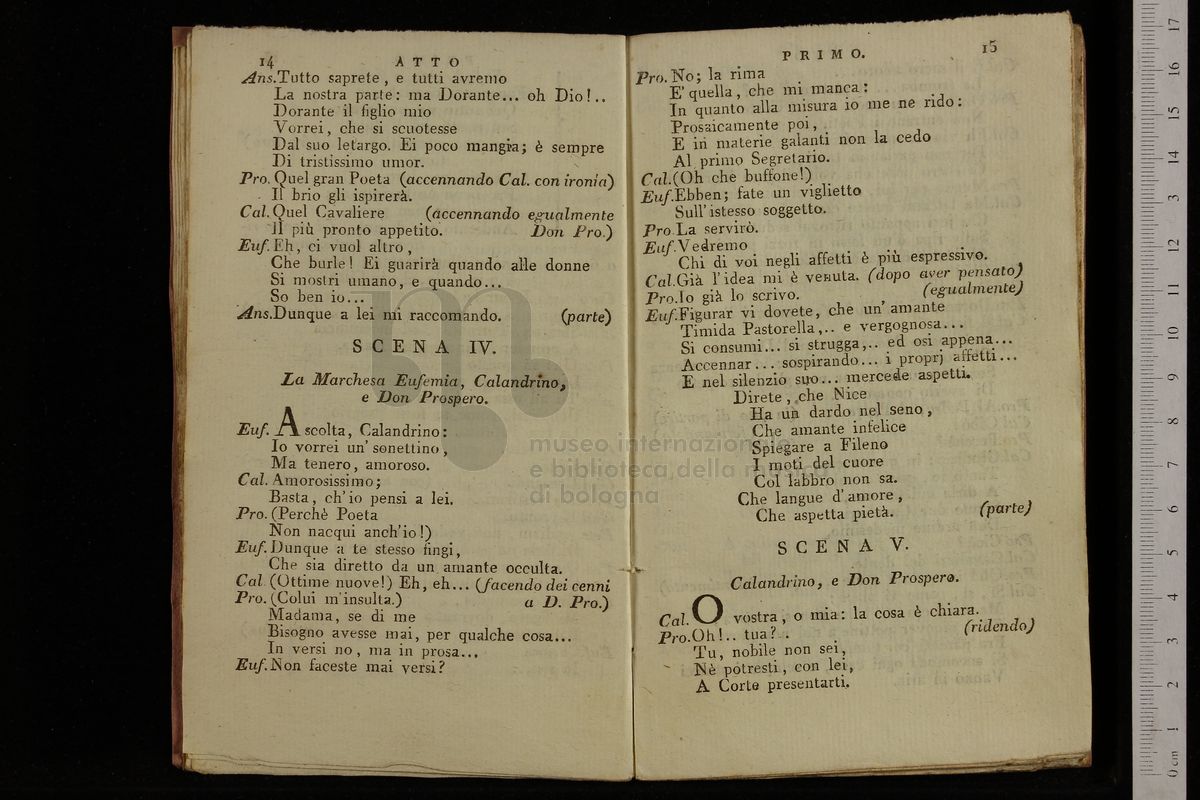 14 ATTO
Ans. Tutto saprete, e tutti avremo
La nostra parte: ma Dorante... oh Dio!..
Dorante il figlio mio
Vorrei, che si scuotesse
Dal suo letargo. Ei poco mangia; è sempre
Di tristissimo umor.
Pro. Quel gran Poeta (accennando Cal. con ironia)
Il brio gli ispirerà.
Cal. Quel Cavaliere (accennando egualmente
Il più pronto appetito. Don Pro.)
Euf. Eh, ci vuol altro,
Che burle! Ei guarirà quando alle donne
Si mostri umano, e quando...
So ben io...
Ans. Dunque a lei mi raccomando. (parte)
SCENA IV.
La Marchesa Eufemia, Calandrino,
e Don Prospero.
Euf. Ascolta, Calandrino:
Io vorrei un' sonettino,
Ma tenero, amoroso.
Cal. Amorosissimo;
Basta, ch'io pensi a lei.
Pro. (Perchè Poeta
Non nacqui anch'io!)
Euf. Dunque a te stesso fingi,
Che sia diretto da un amante occulta.
Cal (Ottime nuove!) Eh, eh... (facendo dei cenni
Pro. (Colui m'insulta.) a D. Pro.)
Madama, se di me
Bisogno avesse mai, per qualche cosa...
In versi no, ma in prosa...
Euf. Non faceste mai versi?
PRIMO. 15
Pro. No; la rima
E' quella, che mi manca:
In quanto alla misura io me ne rido:
Prosaicamente poi,
E in materie galanti non la cedo
Al primo Segretario.
Cal. (Oh che buffone!)
Euf. Ebben; fate un viglietto
Sull'istesso soggetto.
Pro La servirò.
Euf. Vedremo
Chi di voi negli affetti è più espressivo.
Cal. Già l'idea mi è venuta. (dopo aver pensato)
Pro. Io già lo scrivo. (egualmente)
Euf. Figurar vi dovete, che un' amante
Timida Pastorella,.. e vergognosa...
Si consumi... si strugga,.. ed osi appena...
Accennar... sospirando... i proprj affetti...
E nel silenzio suo... mercede aspetti.
Direte, che Nice
Ha un dardo nel seno,
Che amante infelice
Spiegare a Fileno
I moti del cuore
Col labbro non sa.
Che langue d'amore,
Che aspetta pietà. (parte)
SCENA V.
Calandrino, e Don Prospero.
Cal. O vostra, o mia: la cosa è chiara.
Pro. Oh!.. tua?.. (ridendo)
Tu, nobile non sei,
Nè potresti, con lei,
A Corte presentarti.
museo internazionale
e biblioteca della musica
di bologna
0 cm 1 2 3 4 5 6 7 8 9 10 11 12 13 14 15 16 17